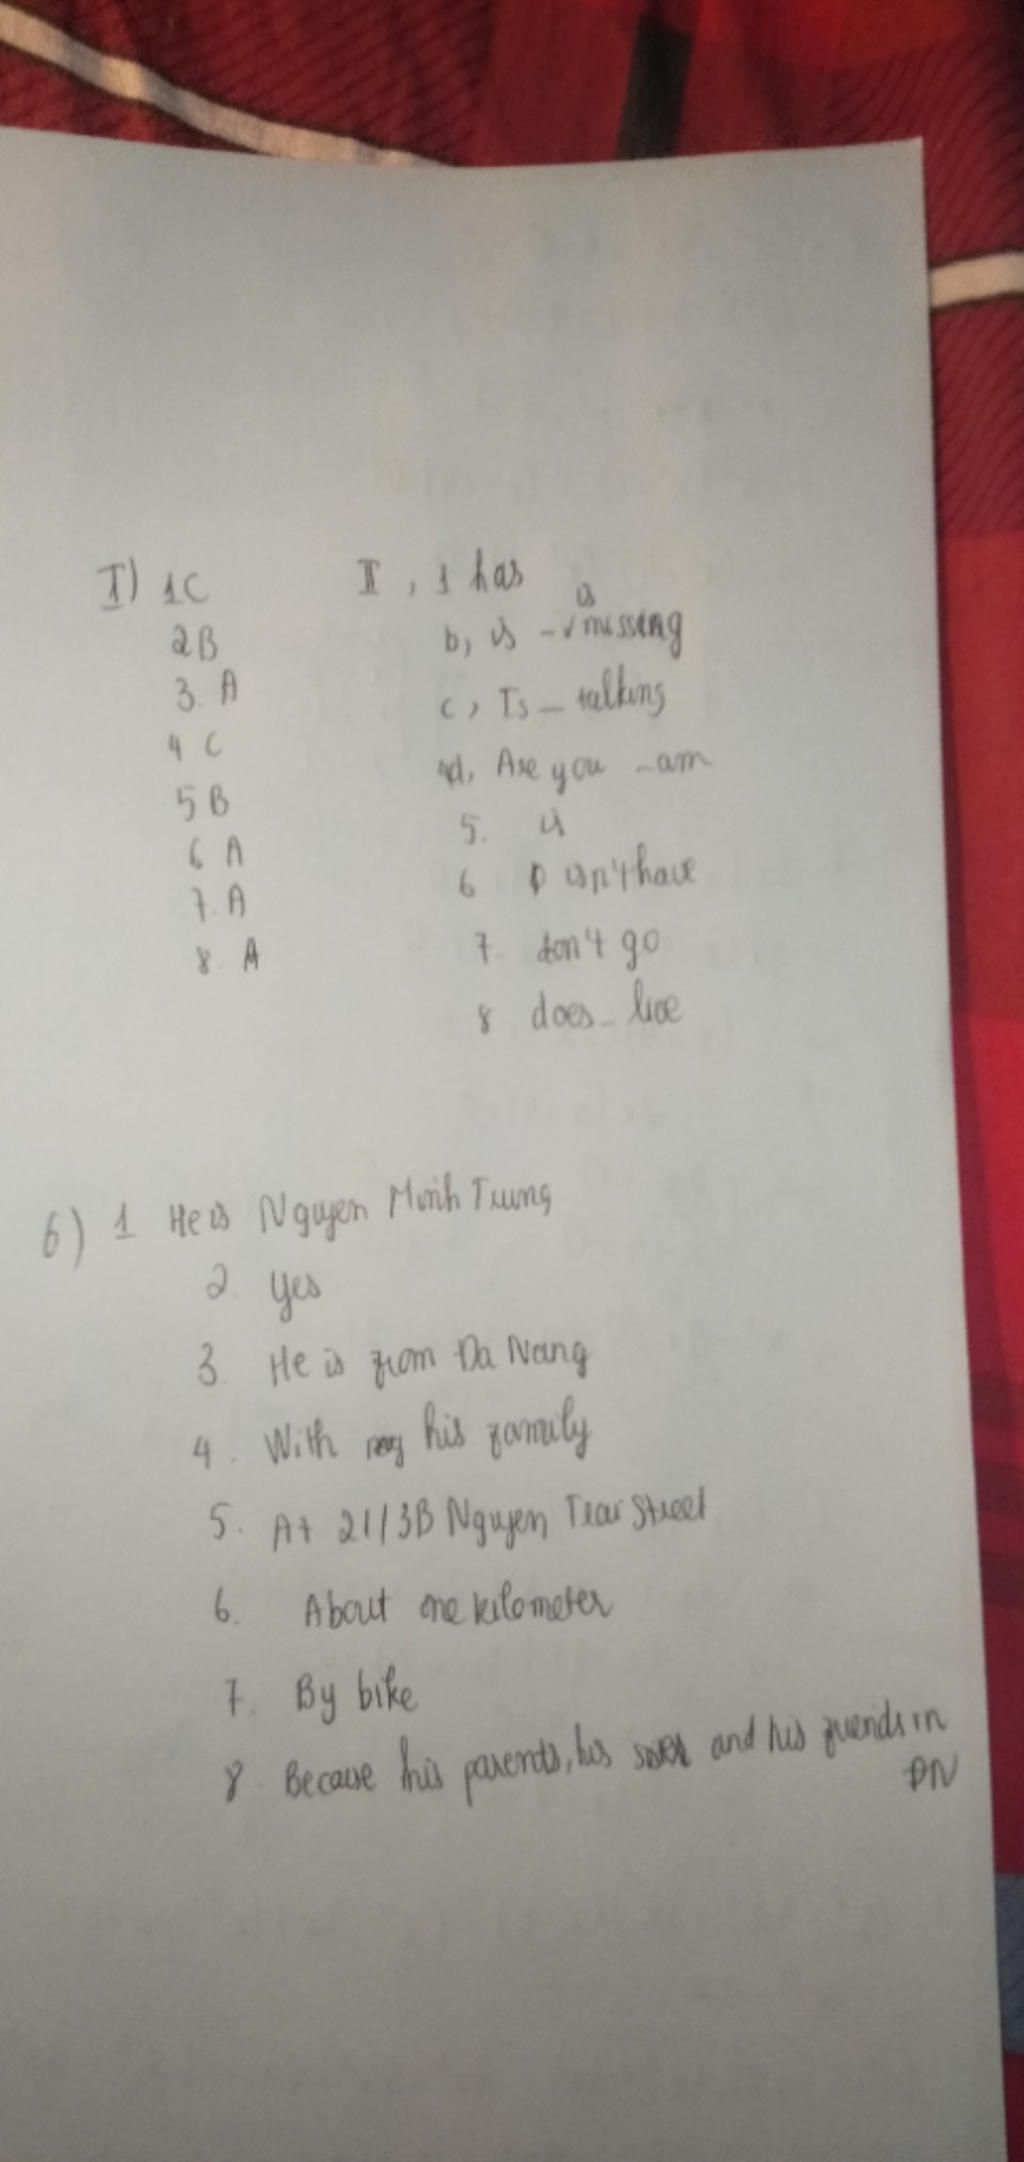 I) 1C
2B
3. A
4 C
5 B
6 A
7. A
8 A
II, 1 has
b, is - is missing
c, Is - talking
d, Are you - am
5. is
6 isn't have
7. don't go
8 does - live
6) 1 He is Nguyen Minh Trung
2. yes
3. He is from Da Nang
4. With his family
5. At 21/3B Nguyen Street
6. About one kilometer
7. By bike
8 Because his parents, his and his friends in
DN